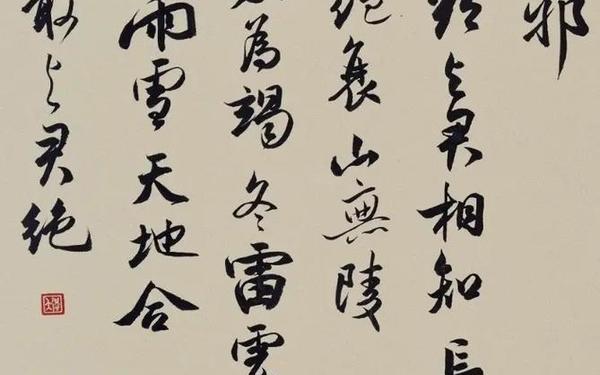 邪
与君相知
絶衰山無陵
為竭冬雷
雨雪天地合
敢与君絶